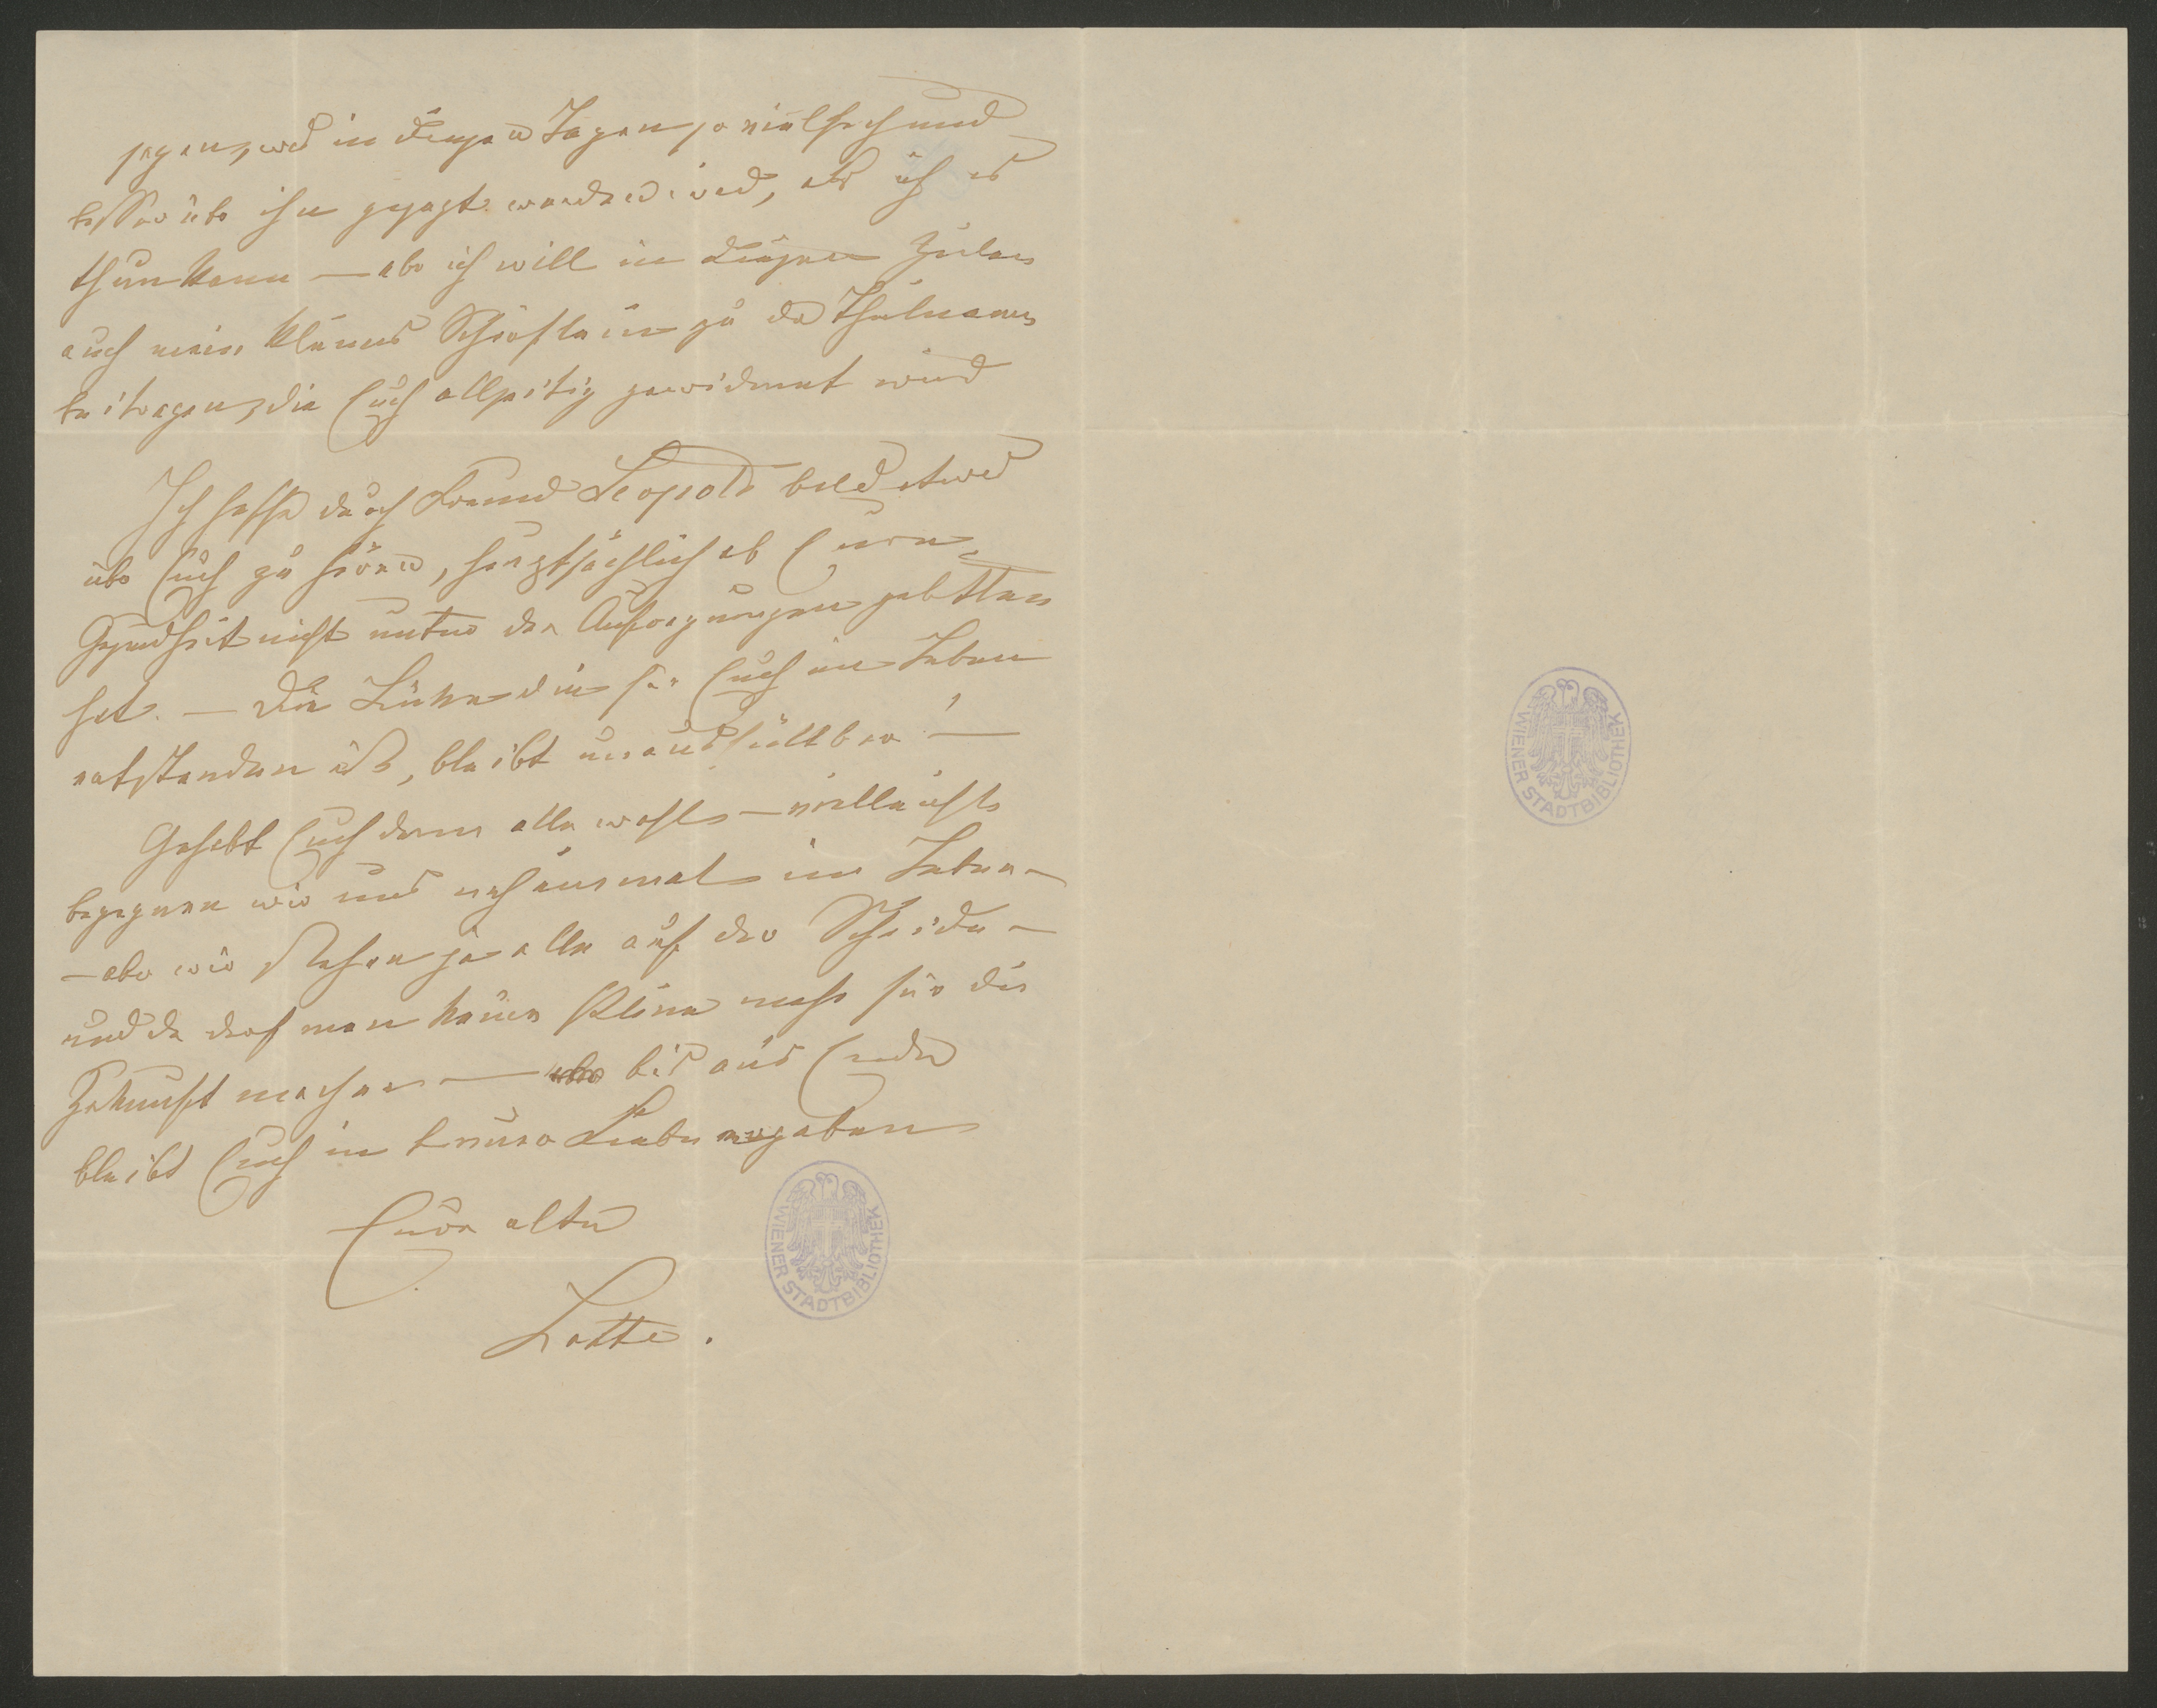 sagen, was in diesen Tagen so vielfach und
besser über ihn gesagt werden wird, als ich es
thun kann — aber ich will in diesen Zeilen
auch mein kleines Schärflein zu der Theilnahme
beitragen, die Euch allseitig gewidmet wird
Ich hoffe durch Freund Leopold bald etwas
über Euch zu hören, hauptsächlich ob Eure
Gesundheit nicht unter den Aufregungen gelitten
hat. — Die Lücke die für Euch im Leben
entstanden ist, bleibt unausfüllbar! —
Gehabt Euch denn alle wohl — vielleicht
begegnen wir uns noch einmal im Leben —
— aber wir stehen ja alle auf der Scheide —
und da darf man keine Pläne mehr für die
Zukunft machen — bis ans Ende
bleibt Euch in treuer Liebe ergeben
Eure alte
Lotte.
WIENER STADTBIBLIOTHEK
WIENER STADTBIBLIOTHEK